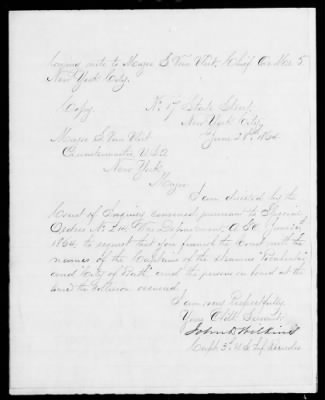 lowing note to Major S. Van Vliet, Chief Qr Mr
New York City.
Copy. No 17 State Street,
New York City
June 28th 1864
Major S. Van Vliet
Quartermaster, U.S.A.
New York
Major
I am directed by the
Court of Inquiry convened pursuant to Special
Orders No War Department, A.G.O. June
1864, to request that you furnish the Court with the
names of the Captains of the Steamers
and "City of Bath" and the persons on board at the
time the collision occurred.
I am very Respectfully
Your Obdt Servant,
John D. Wilkins
3d U.S. Inf Recorder